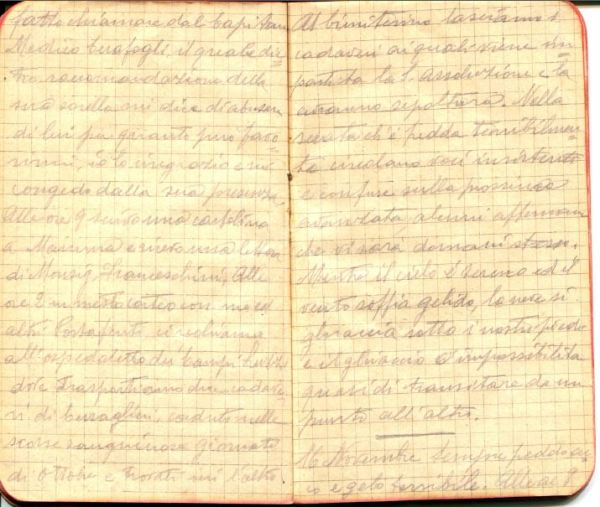 fatto chiamare dal Capitano
Medico Cerafogli, il quale die
tro raccomandazione della
sua sorella mi dice di abusare
di lui per quanto può favo
rirmi, io lo ringrazio e mi
congedo dalla sua presenza.
Alle ore 9 scrivo una cartolina
a Mamma e ricevo una lettera
di Monsig. Franceschini. Alle
ore 2 in mesto corteo con me ed
altri Portaferiti ci rechiamo
all'ospedaletto dei Campi
dove trasportiamo due cadave
ri di bersaglieri, caduti nelle
scorse sanguinose giornate
di Ottobre e l'altro
Al bimiterino lasciamo i
cadaveri ai quali viene im
partita la S. Assoluzione e la
avranno sepoltura. Nella
serata ch'è fredda terribilmen
te circolano voci insistenti
e confuse sulla prossima
avanzata, alcuni affermano
che vi sarà domani stesso.
Mentre il cielo è sereno ed il
vento soffia gelido, la neve si
ghiaccia sotto i nostri piedi
e il ghiaccio c'impossibilita
quasi di transitare da un
punto all'altro.
16 Novembre Sempre freddo cu
po e gelo terribile. Alle ore 8